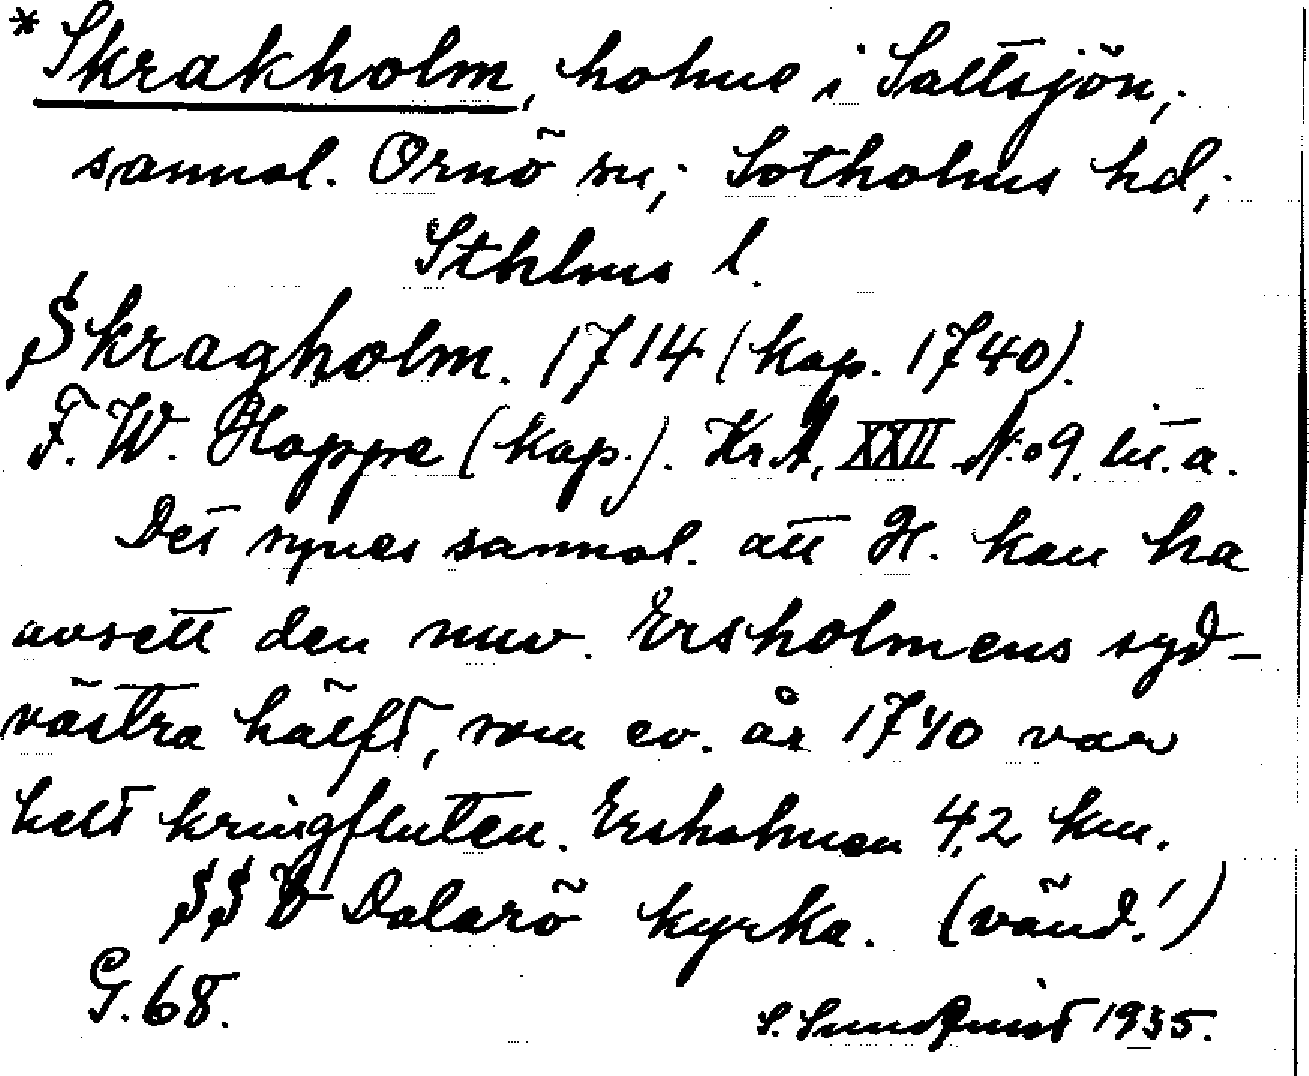 *Skrakholm, holme i Saltsjön,
sannol. Ornö sn, Sotholms hd,
Sthlms l.
Skragholm. 1714 (kap. 1740).
F. W. Hoppe (kap.). Kr.A, XXII N:o 9. litt. a.
Det synes sannol. att H. kan ha
avsett den nuv. Ersholmens syd-
västra hälft, som ev. år 1740 var
helt kringfluten. Ersholmen 4,2 km.
SSV Dalarö kyrka. (vänd!)
G. 68.
S. Sundquist 1935.